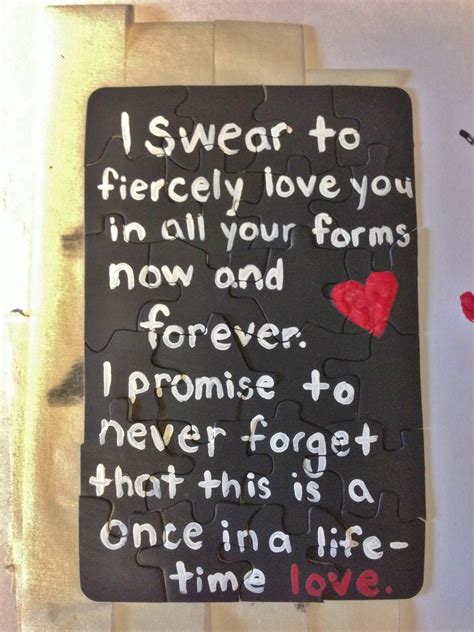 I swear to
fiercely love you
in all your forms
now and
forever.
I promise to
never forget
that this is a
once in a life-
time love.